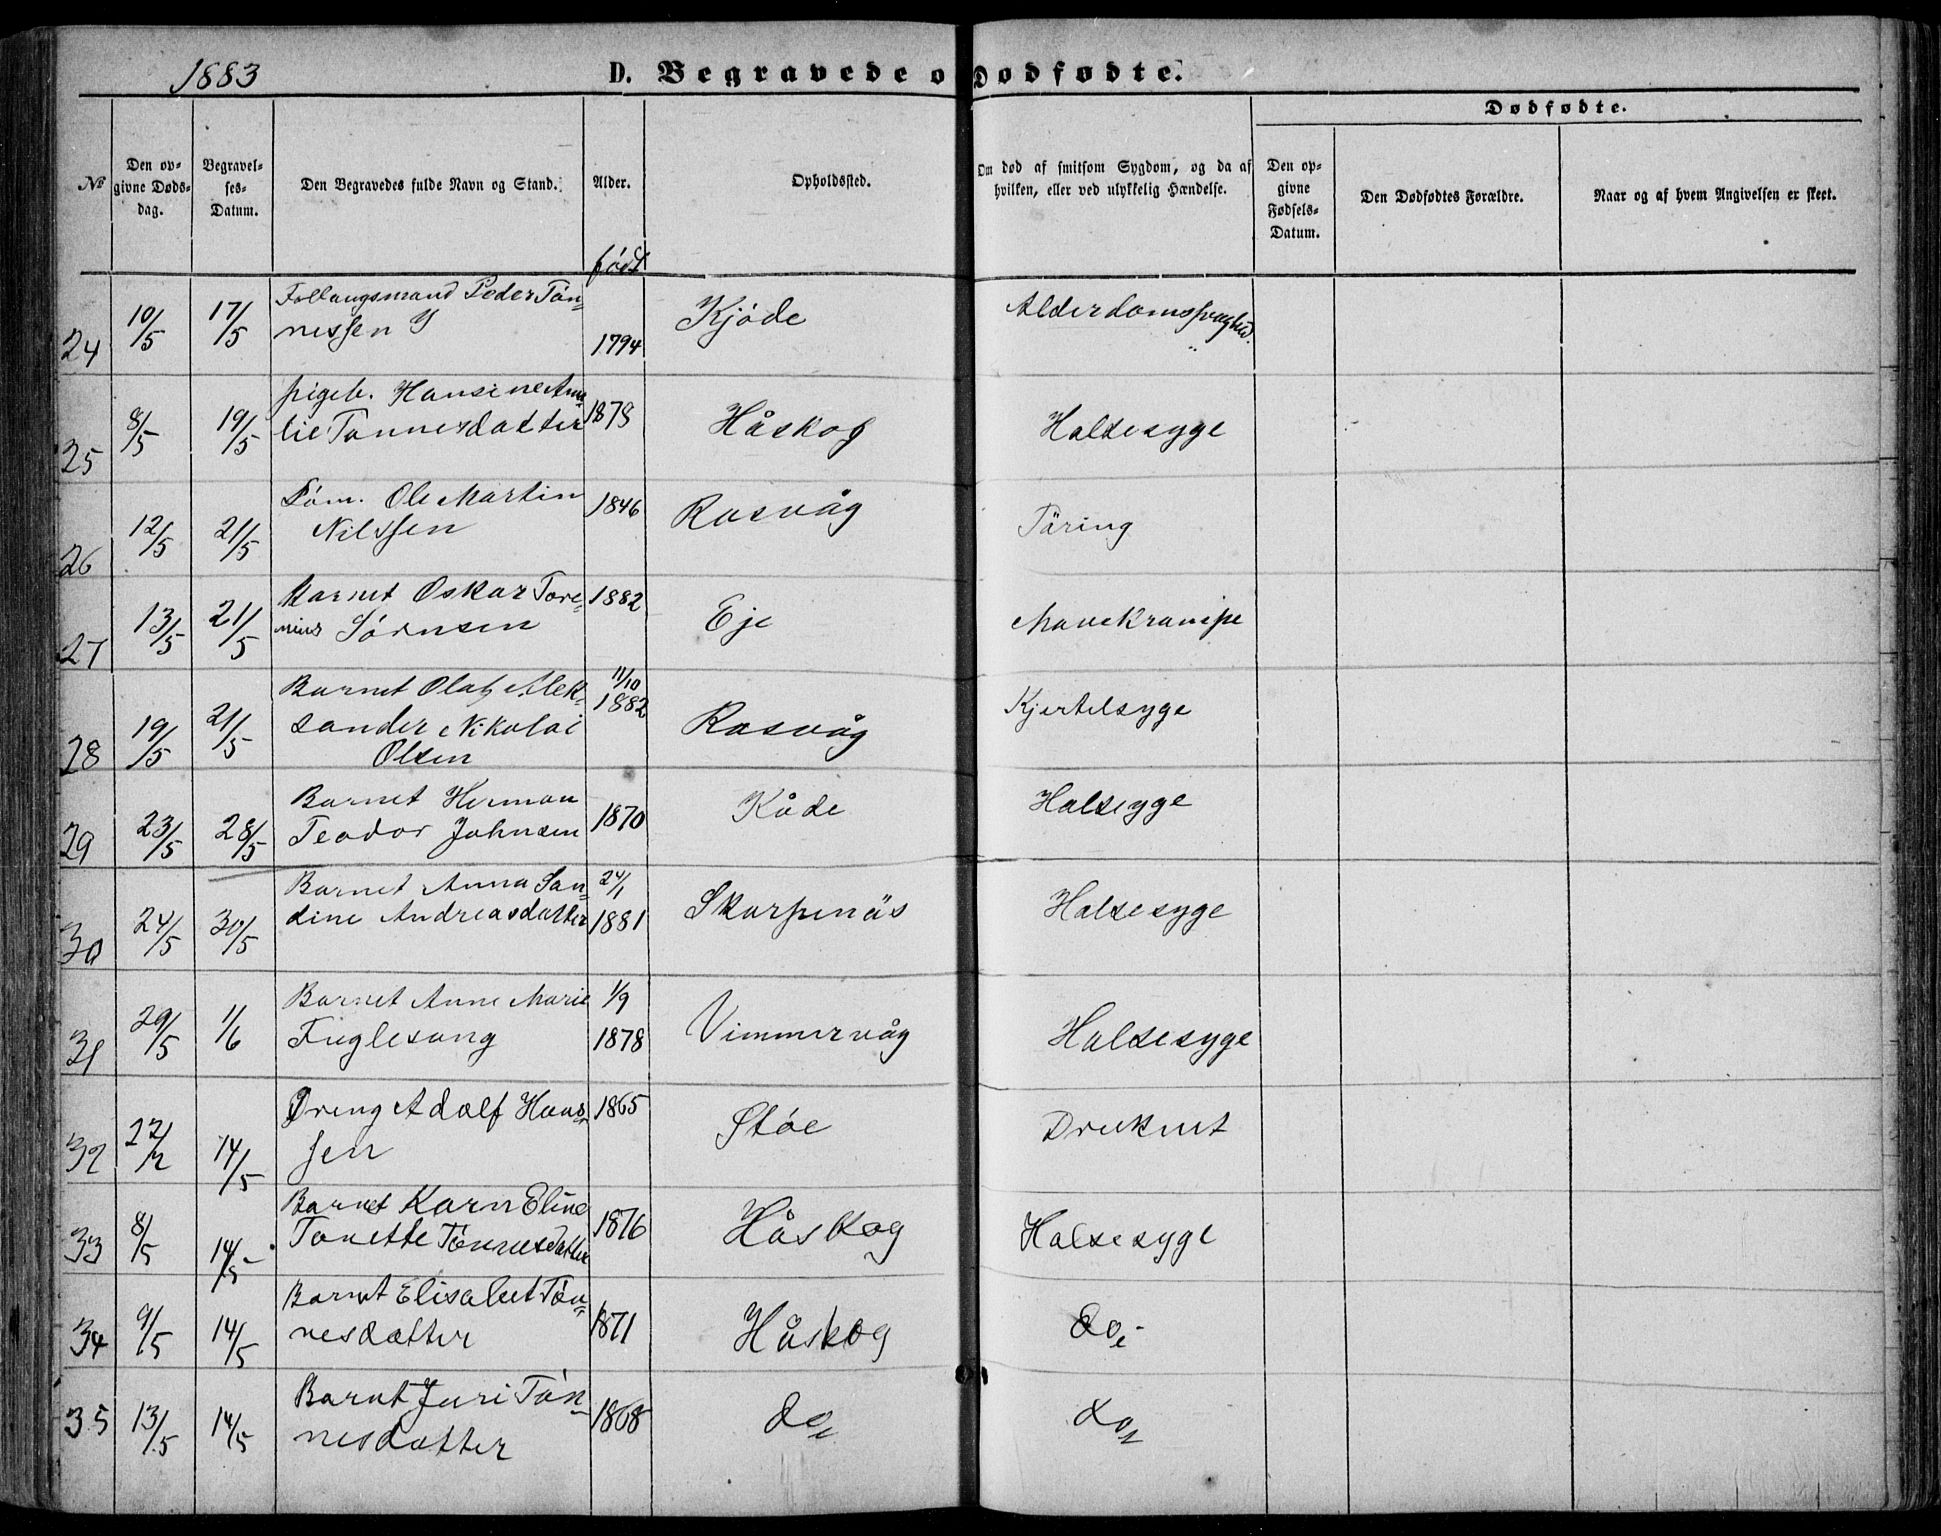 1883
D. Begravede o
Dødfødte.
Dødfødte.
No
Den op-
givne Døds-
dag.
Begravel-
ses-
Datum.
Den Begravedes fulde Navn og Stand.
Alder.
født
Opholdssted.
Om død af smitsom Sygdom, og da af
hvilken, eller ved ulykkelig Hændelse.
Den op-
givne
Fødsels-
Datum.
Den Dødfødtes Forældre.
Naar og af hvem Angivelsen er skeet.
24 10/5 17/5 Follaugsmand Peder Tön-
nessen 1794 Kjöde Alderdomssvaghed.
25 8/5 19/5 pigeb. Hansine Ama-
lie Tönnesdatter 1878 Håskog Halsesyge
26 12/5 21/5 Söm. Ole Martin
Nilssen 1846 Rasvåg Täring
27 13/5 21/5 Barnet Oskar Tore-
nius Sörnsen 1882 Eje Mavekrampe
28 19/5 21/5 Barnet Olaf Alek-
sander Nikolai
Olsen 11/10 1882 Rasvåg Kjertelsyge
29 23/5 28/5 Barnet Herman
Teodor Johnsen 1870 Kåde Halsesyge
30 24/5 30/5 Barnet Anna San-
dine Andreasdatter 24/1 1881 Skarpenäs Halsesyge
31 29/5 1/6 Barnet Anne Marie
Fuglesang 1/9 1878 Vimmervåg Halsesyge
32 22/2 14/5 Dreng Adolf Hans-
sen 1865 Stöe Druknet
33 8/5 14/5 Barnet Karn Eline
Tonette Tönnesdatter 1876 Håskog Halsesyge
34 9/5 14/5 Barnet Elisabet Tön-
nesdatter 1871 Håskog do.
35 13/5 14/5 Barnt Juri Tön-
nesdatter 1868 do. do.